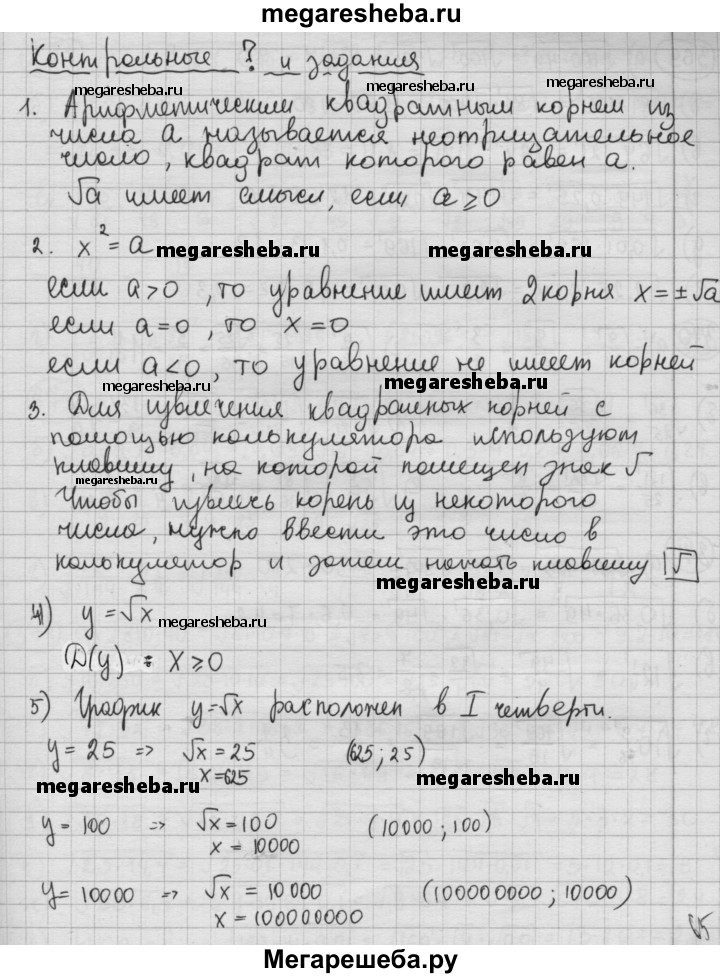 megaresheba.ru
Контрольные ? и задания
megaresheba.ru
megaresheba.ru
1. Арифметическим квадратным корнем из
числа a называется неотрицательное
число, квадрат которого равен a.
√a имеет смысл, если a ⩾ 0
2. x² = a
megaresheba.ru
megaresheba.ru
если a>0, то уравнение имеет 2 корня x = ±√a
если a=0, то x=0
если a<0, то уравнение не имеет корней
megaresheba.ru
megaresheba.ru
3. Для извлечения квадратных корней с
помощью калькулятора используют
клавишу, на которой помещен знак √
megaresheba.ru
Чтобы извлечь корень из некоторого
числа, нужно ввести это число в
калькулятор и затем нажать клавишу √
megaresheba.ru
4) y = √x
megaresheba.ru
D(y) : x ⩾ 0
5) График y=√x расположен в I четверти.
y = 25 => √x = 25 (625; 25)
x=625
megaresheba.ru
megaresheba.ru
y = 100 => √x = 100 (10000; 100)
x = 10000
y = 10000 => √x = 10000 (100000000; 10000)
x = 100000000
Мегарешеба.ру